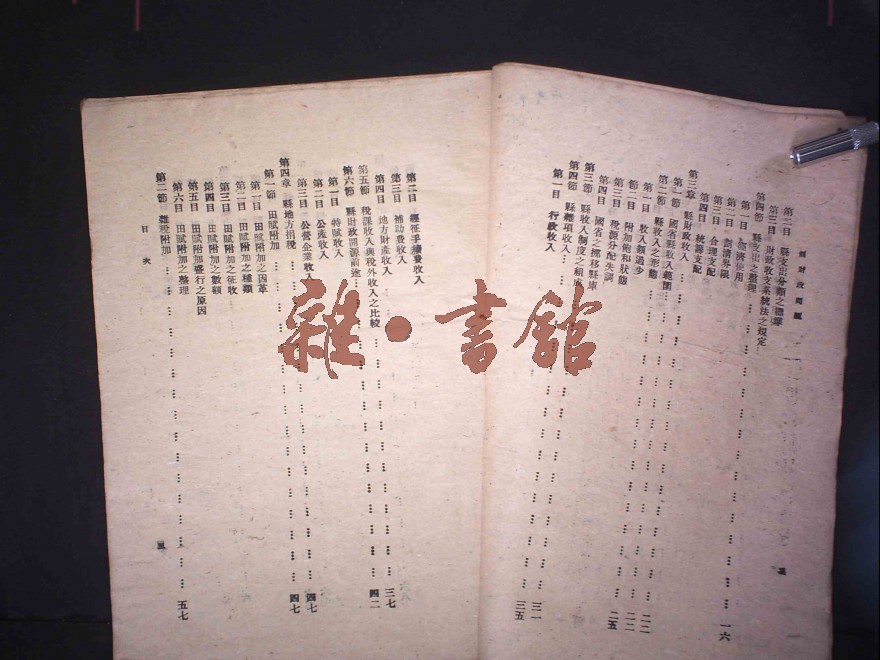 縣財政問題
第二目 縣支出分類之標準
第三目 財政收支系統法之規定
第四節 縣支出之整理 … 一六
第一目 經濟使用
第二目 劃清界限
第三目 合理支配
第四目 統籌支配
第三章 縣財政收入
第一節 國省縣收入範圍 … 二二
第二節 縣收入之形態 … 二二
第一目 收入額過少
第二目 附加飽和狀態
第三目 稅源分配失調 … 二五
第四目 國省之挪移縣庫
第三節 縣收入制度之組成 … 三一
第四節 縣雜項收入 … 三五
第一目 行政收入
第二目 經征手續費收入
第三目 補助費收入
第四目 地方財產收入 … 三七
第五節 稅課收入與稅外收入之比較 … 四二
第六節 縣財政開源前途
第一目 特賦收入
第二目 公產收入
第三目 公營企業收入 … 四七
第四章 縣地方捐稅 … 四七
第一節 田賦附加
第一目 田賦附加之因革
第二目 田賦附加之種類
第三目 田賦附加之征收
第四目 田賦附加之數額
第五目 田賦附加盛行之原因
第六目 田賦附加之整理
第二節 雜稅附加 … 五七
目 次
三
雜·書館